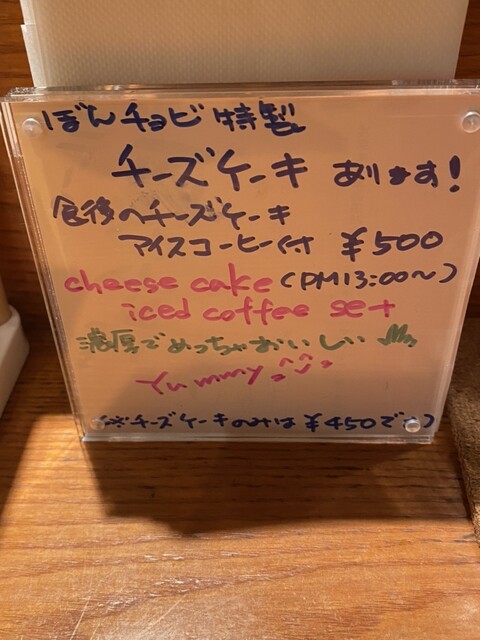 ぼんチョビ特製
チーズケーキあります!
食後のチーズケーキ
アイスコーヒー付 ¥500
cheese cake (PM13:00〜)
iced coffee set
濃厚でめっちゃおいしい
Yummy
(※チーズケーキのみは¥450です)